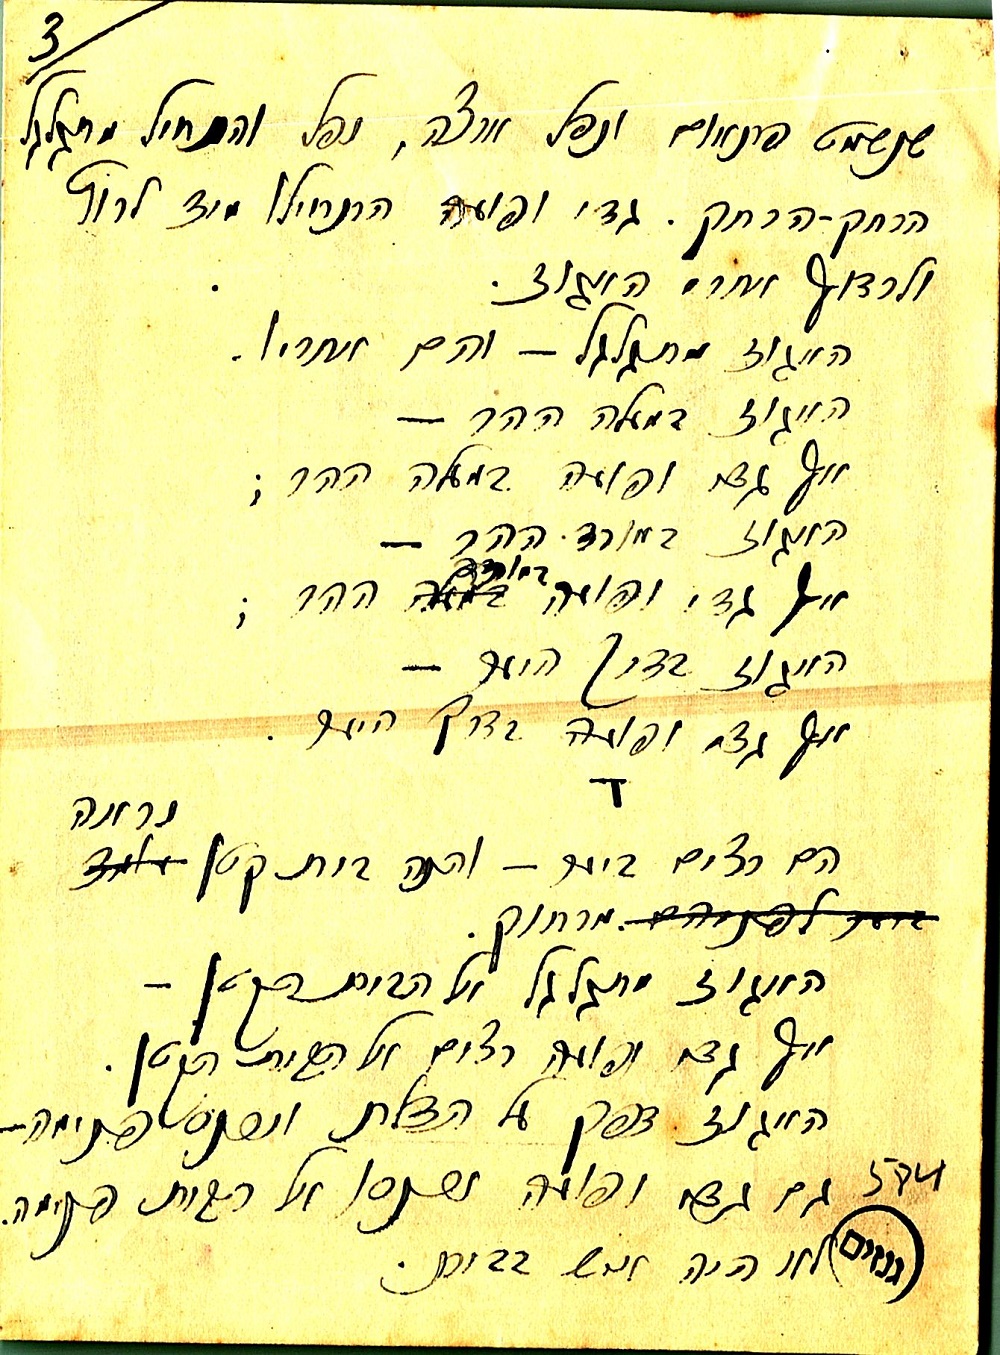 3
שנשמט פתאום ונפל ארצה, נפל והתחיל מתגלגל
הרחק-הרחק. גדי ופועה התחילו מיד לרוץ
ולרדוף אחרי האגוז.
האגוז מתגלגל – והם אחריו.
האגוז במעלה ההר –
אף גדי ופועה במעלה ההר;
האגוז במורד ההר –
אף גדי ופועה במורד ההר;
האגוז בדרך היער –
אף גדי ופועה בדרך היער.
ד
נראה
הם רצים ביער – והנה בית קטן
מרחוק.
האגוז מתגלגל אל הבית הקטן –
אף גדי ופועה רצים אל הבית הקטן.
האגוז דפק על הדלת ונכנס פנימה –
גם גדי ופועה נכנסו אל הבית פנימה.
לא היה איש בבית.
גנזים